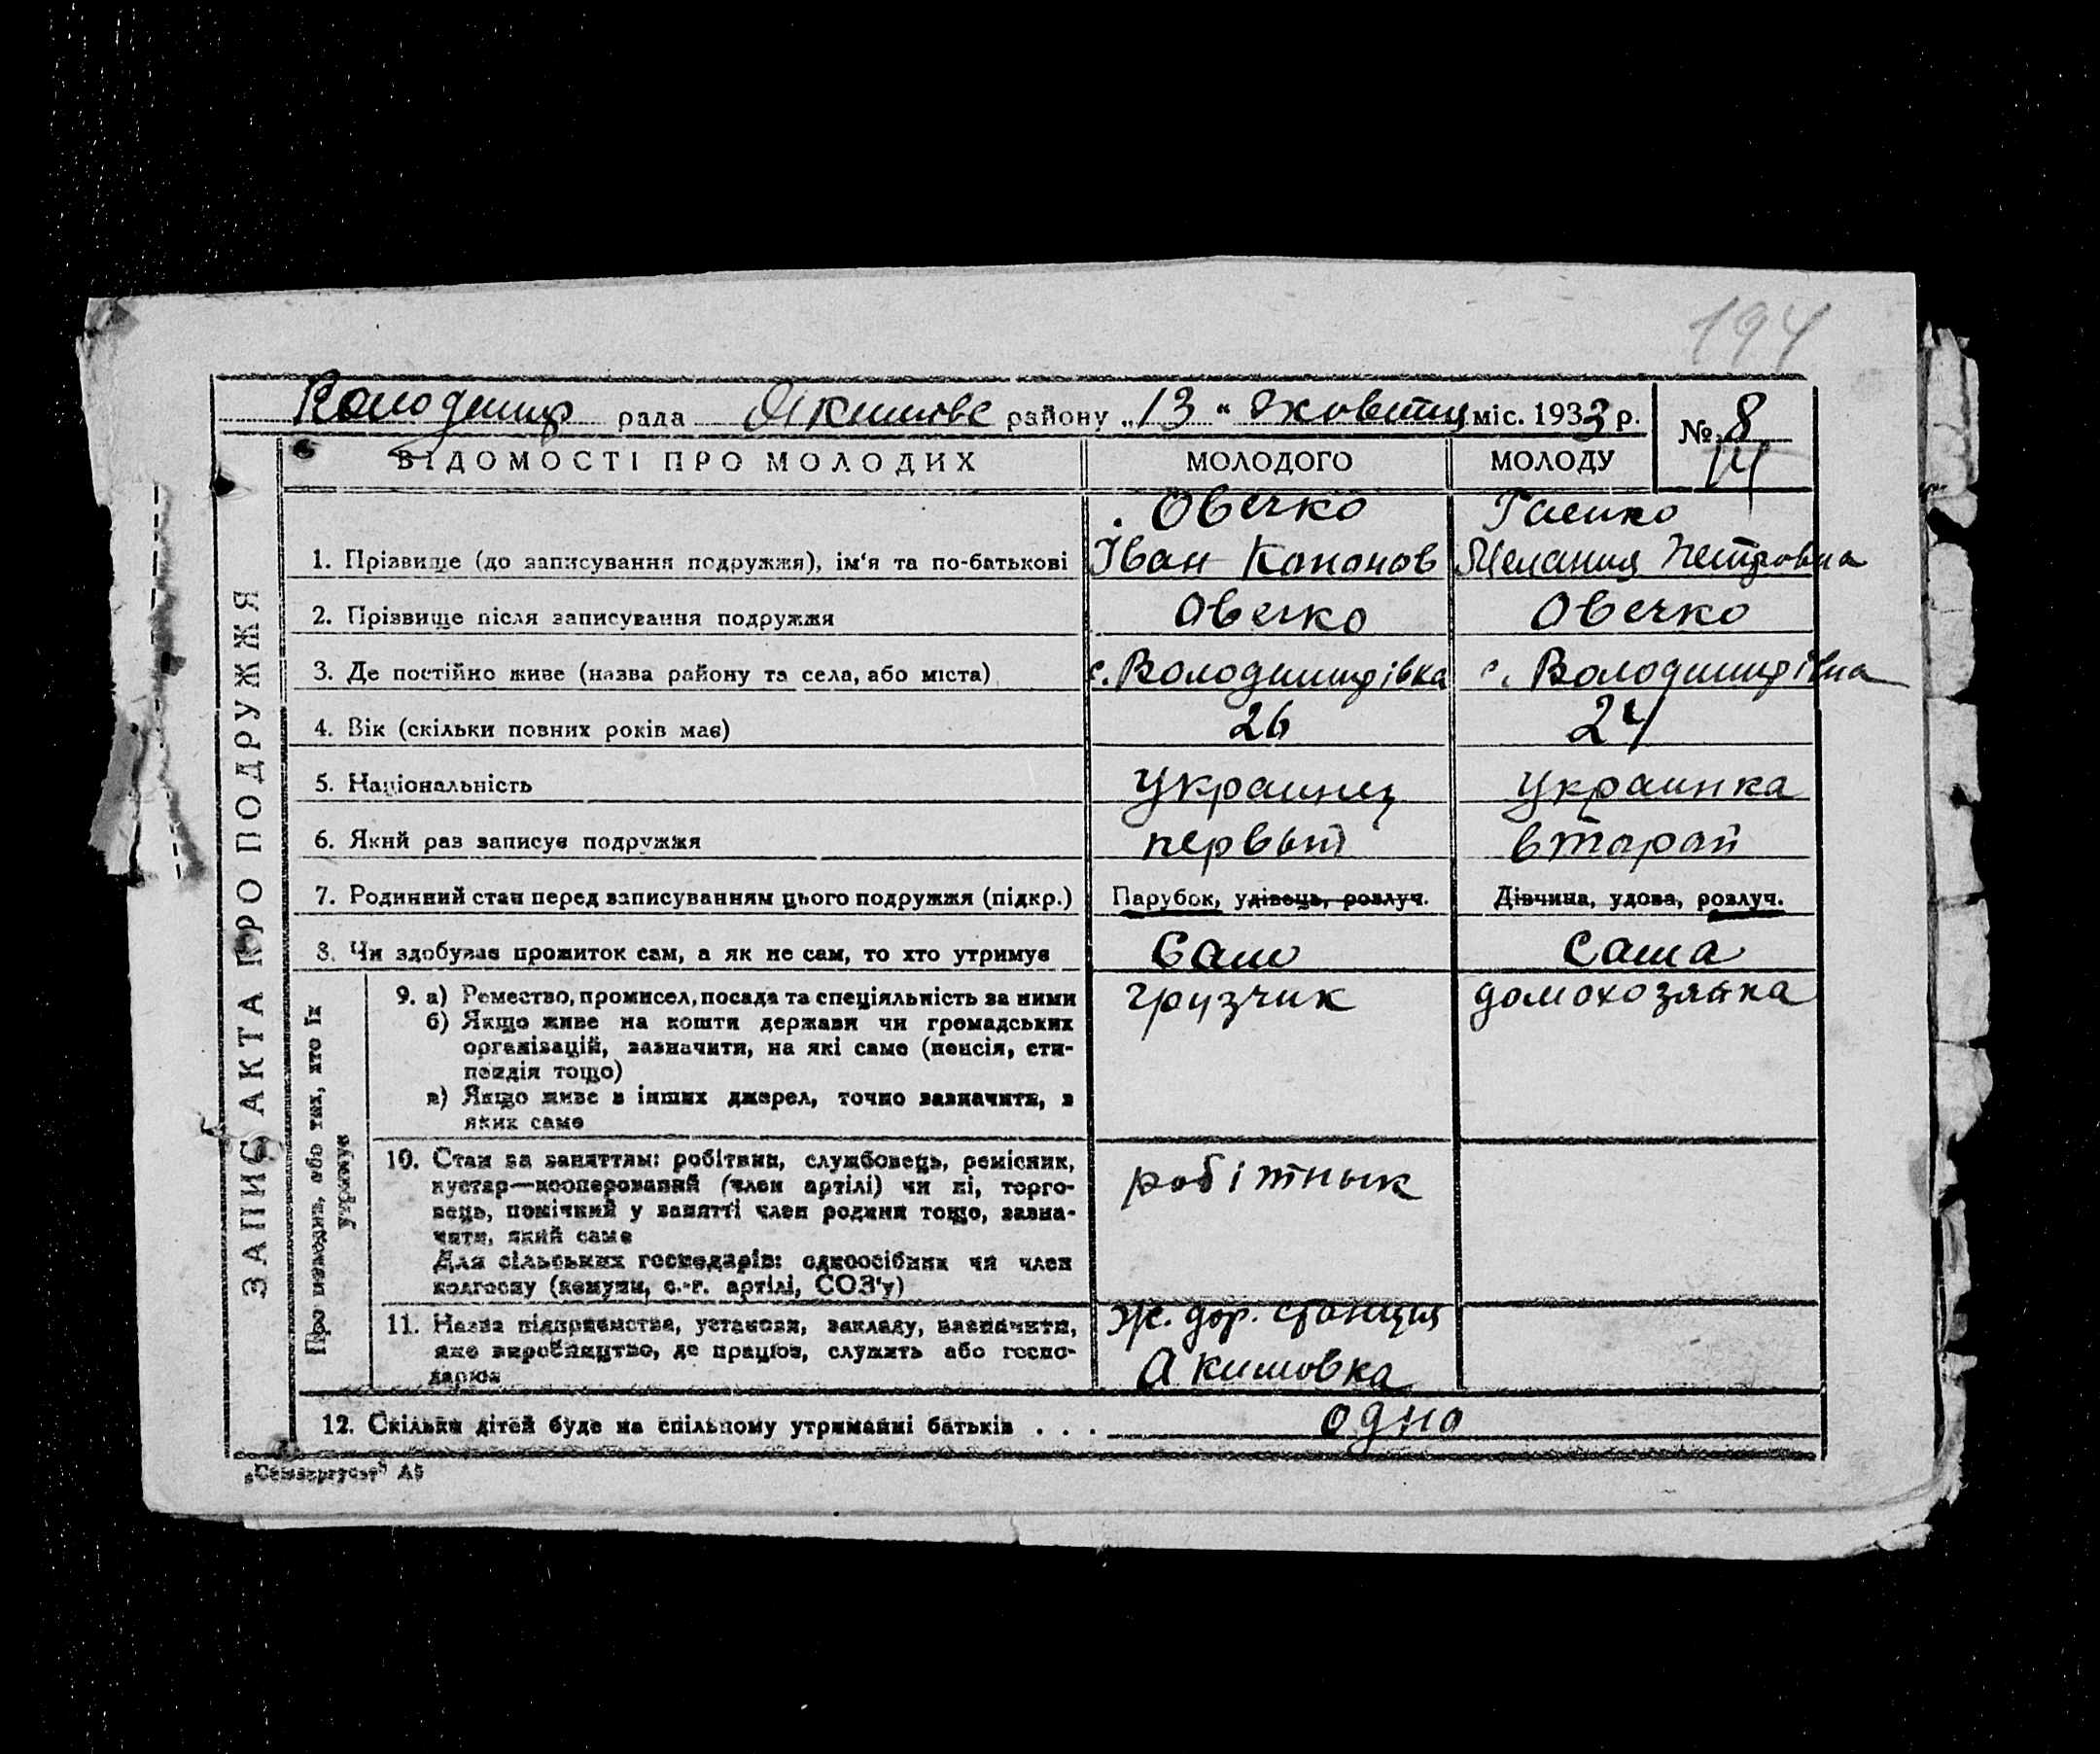 194
Володимир рада Якимове району „13“ жовтня міс. 1933 р. № 8
14
ВІДОМОСТІ ПРО МОЛОДИХ МОЛОДОГО МОЛОДУ
ЗАПИС АКТА ПРО ПОДРУЖЖЯ
Овечко
1. Прізвище (до записування подружжя), ім'я та по-батькові Іван Кононов Мелания Петровна
2. Прізвище після записування подружжя Овечко Овечко
3. Де постійно живе (назва району та села, або міста) с. Володимирівка с. Володимирівка
4. Вік (скільки повних років має) 26 24
5. Національність украинец украинка
6. Який раз записує подружжя первый второй
7. Родинний стан перед записуванням цього подружжя (підкр.) Парубок, удівець, розлуч. Дівчина, удова, розлуч.
8. Чи здобуває прожиток сам, а як не сам, то хто утримує сам сама
Про молодих, або тих, хто їх
утримує
9. а) Ремество, промисел, посада та спеціяльність за ними грузчик домохозяйка
б) Якщо живе на кошти держави чи громадських
організацій, зазначити, на які саме (пенсія, сти-
пендія тощо)
в) Якщо живе з інших джерел, точно зазначити, з
яких саме
10. Стан за заняттям: робітник, службовець, ремісник, робітнык
кустар—кооперований (член артілі) чи ні, торго-
вець, помічний у занятті член родини тощо, зазна-
чити, який саме
Для сільських господарів: одноосібник чи член
колгоспу (комуни, с.-г. артілі, СОЗ'у)
11. Назва підприємства, установи, закладу, зазначити, Ж. дор. станция
яке виробництво, де працює, служить або госпо- Акимовка
дарює
12. Скільки дітей буде на спільному утриманні батьків . . . одно